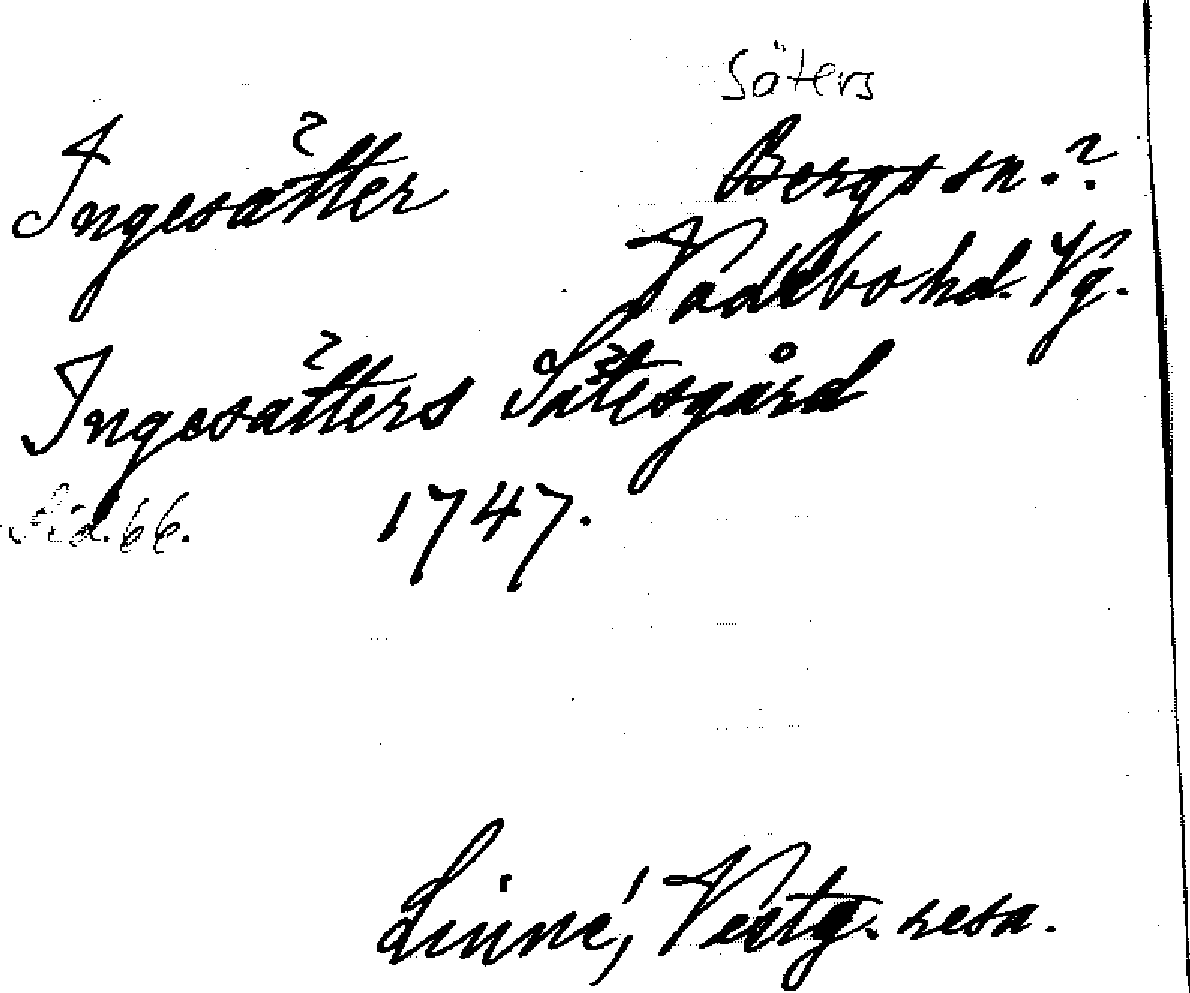 Säters
Ingesätter Bergs sn.?
Vadsbo hd. Vg.
Ingesätters Sätesgård
Sid. 66. 1747.
Linné, Vestg. resa.